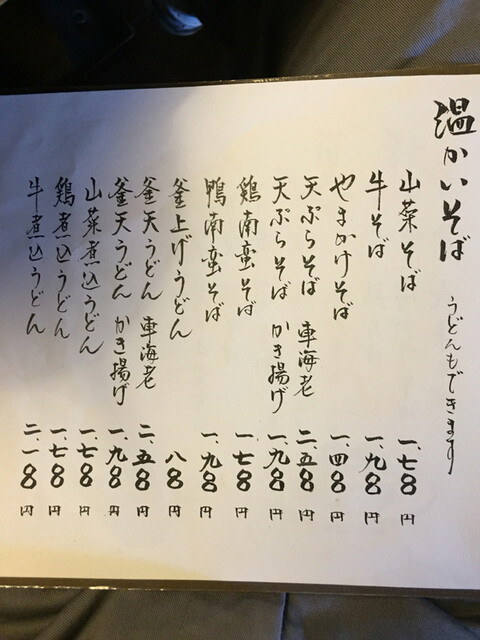 温かいそば うどんもできます
山菜そば 一、七〇〇円
牛そば 一、九〇〇円
やまかけそば 一、四〇〇円
天ぷらそば 車海老 二、五〇〇円
天ぷらそば かき揚げ 一、九〇〇円
鶏南蛮そば 一、七〇〇円
鴨南蛮そば 一、九〇〇円
釜上げうどん 八〇〇円
釜天うどん 車海老 二、五〇〇円
釜天うどん かき揚げ 一、九〇〇円
山菜煮込うどん 一、七〇〇円
鶏煮込うどん 一、七〇〇円
牛煮込うどん 二、一〇〇円